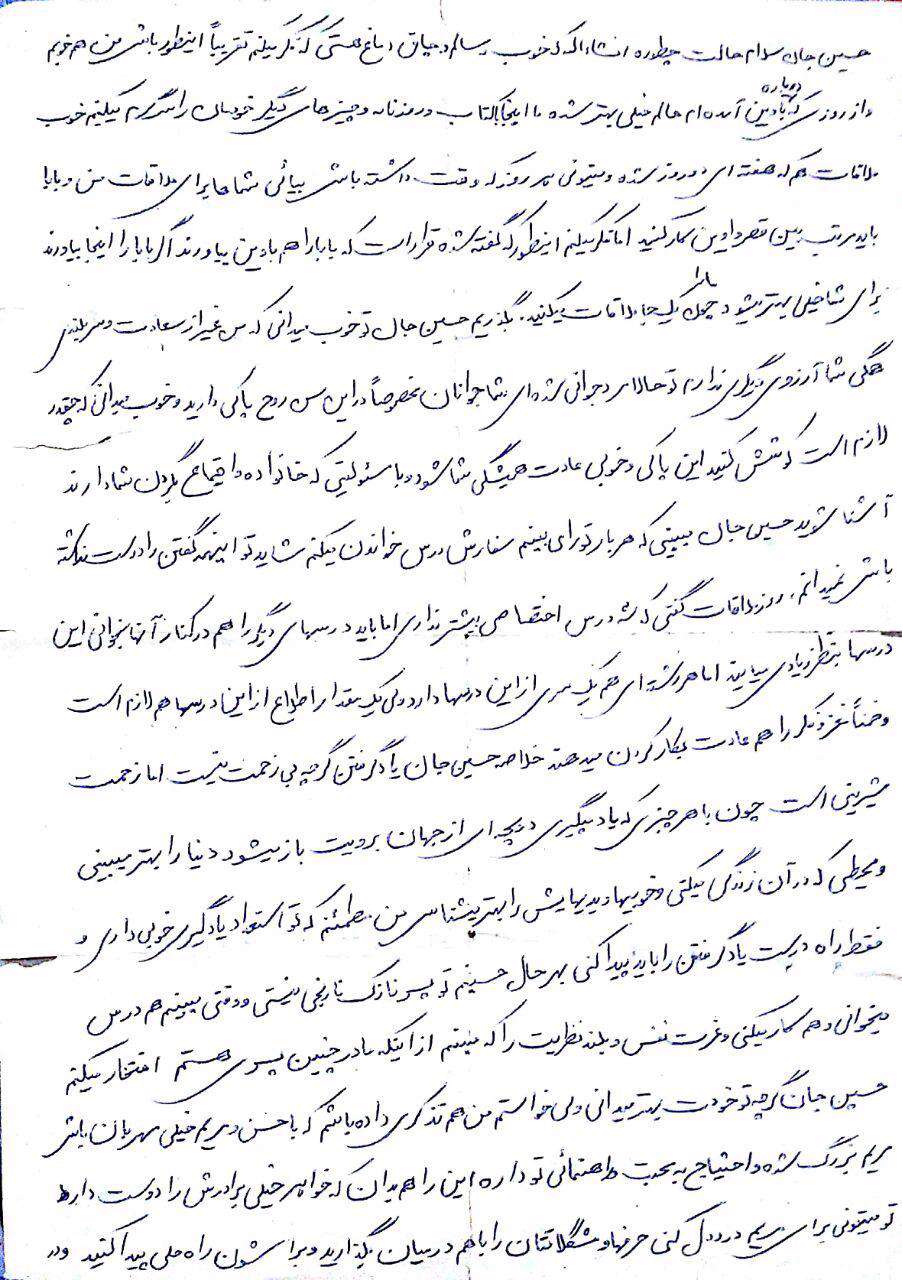 حسین جان سلام حالت چطوره انشاءالله که خوب و سالم و چاق و دماغ هستی که فکر میکنم تقریباً اینطور باشی من هم خوبم
و از روزی که دوباره باوین آمده ام حالم خیلی بهتر شده با اینجا کتاب و روزنامه و چیزهای دیگر خودمان را سرگرم میکنیم خوب
ملاقات هم که هفته ای دو روز شده و میتونی هر روز که وقت داشته باشی بیائی شماها برای ملاقات من و بابا
باید مرتب بین قصر و اوین کار کنید اما فکر میکنم اینطور که گفته شده قرار است که بابا را هم باوین بیاورند اگر بابا را اینجا بیاورند
برای شما خیلی بهتر میشود چون ما را یک جا ملاقات میکنید. بگذریم حسین جان تو خوب میدانی که من غیر از سعادت و سربلندی
همگی شما آرزوی دیگری ندارم تو حالا دیگر جوانی شده ای شما جوانان مخصوصاً در این سن روح پاکی دارید و خوب میدانی که چقدر
لازم است کوشش کنید این پاکی و خوبی عادت همیشگی شما شود و با مسئولیتی که خانواده و اجتماع بگردن شما دارند
آشنا شوید حسین جان میبینی که هر بار تو را می بینم سفارش درس خواندن میکنم شاید تو اینهمه گفتن را دوست نداشته
باشی نمیدانم. روز ملاقات گفتی که سه درس اختصاصی بیشتر نداری اما باید درسهای دیگر را هم در کنار آنها بخوانی این
درسها بنظر زیادی میایند اما هر رشته ای هم یک سری از این درسها دارد ولی یک مقدار اطلاع از این درسها هم لازم است
و ضمناً مغز و فکر را هم عادت بکار کردن میدهند خلاصه حسین جان یادگرفتن گرچه بی زحمت نیست اما زحمت
شیرینی است چون با هر چیزی که یاد میگیری دریچه ای از جهان برویت باز میشود دنیا را بهتر میبینی
و محیطی که در آن زندگی میکنی و خوبیها و بدیهایش را بهتر میشناسی من مطمئنم که تو استعداد یادگیری خوبی داری و
فقط راه درست یادگرفتن را باید پیدا کنی بهر حال حسینم تو پسر نازک نارنجی نیستی و وقتی میبینم هم درس
میخوانی و هم کار میکنی و عزت نفس و بلند نظریت را که میبینم از اینکه مادر چنین پسری هستم افتخار میکنم
حسین جان گرچه تو خودت بهتر میدانی ولی خواستم من هم تذکری داده باشم که با حسن و مریم خیلی مهربان باش
مریم بزرگ شده و احتیاج به محبت و راهنمائی تو داره این را هم بدان که خواهر خیلی برادرش را دوست دارد
تو میتونی برای مریم درد دل کنی حرفها و مشگلاتتان را با هم در میان بگذارید و براشون راه حلی پیدا کنید و در